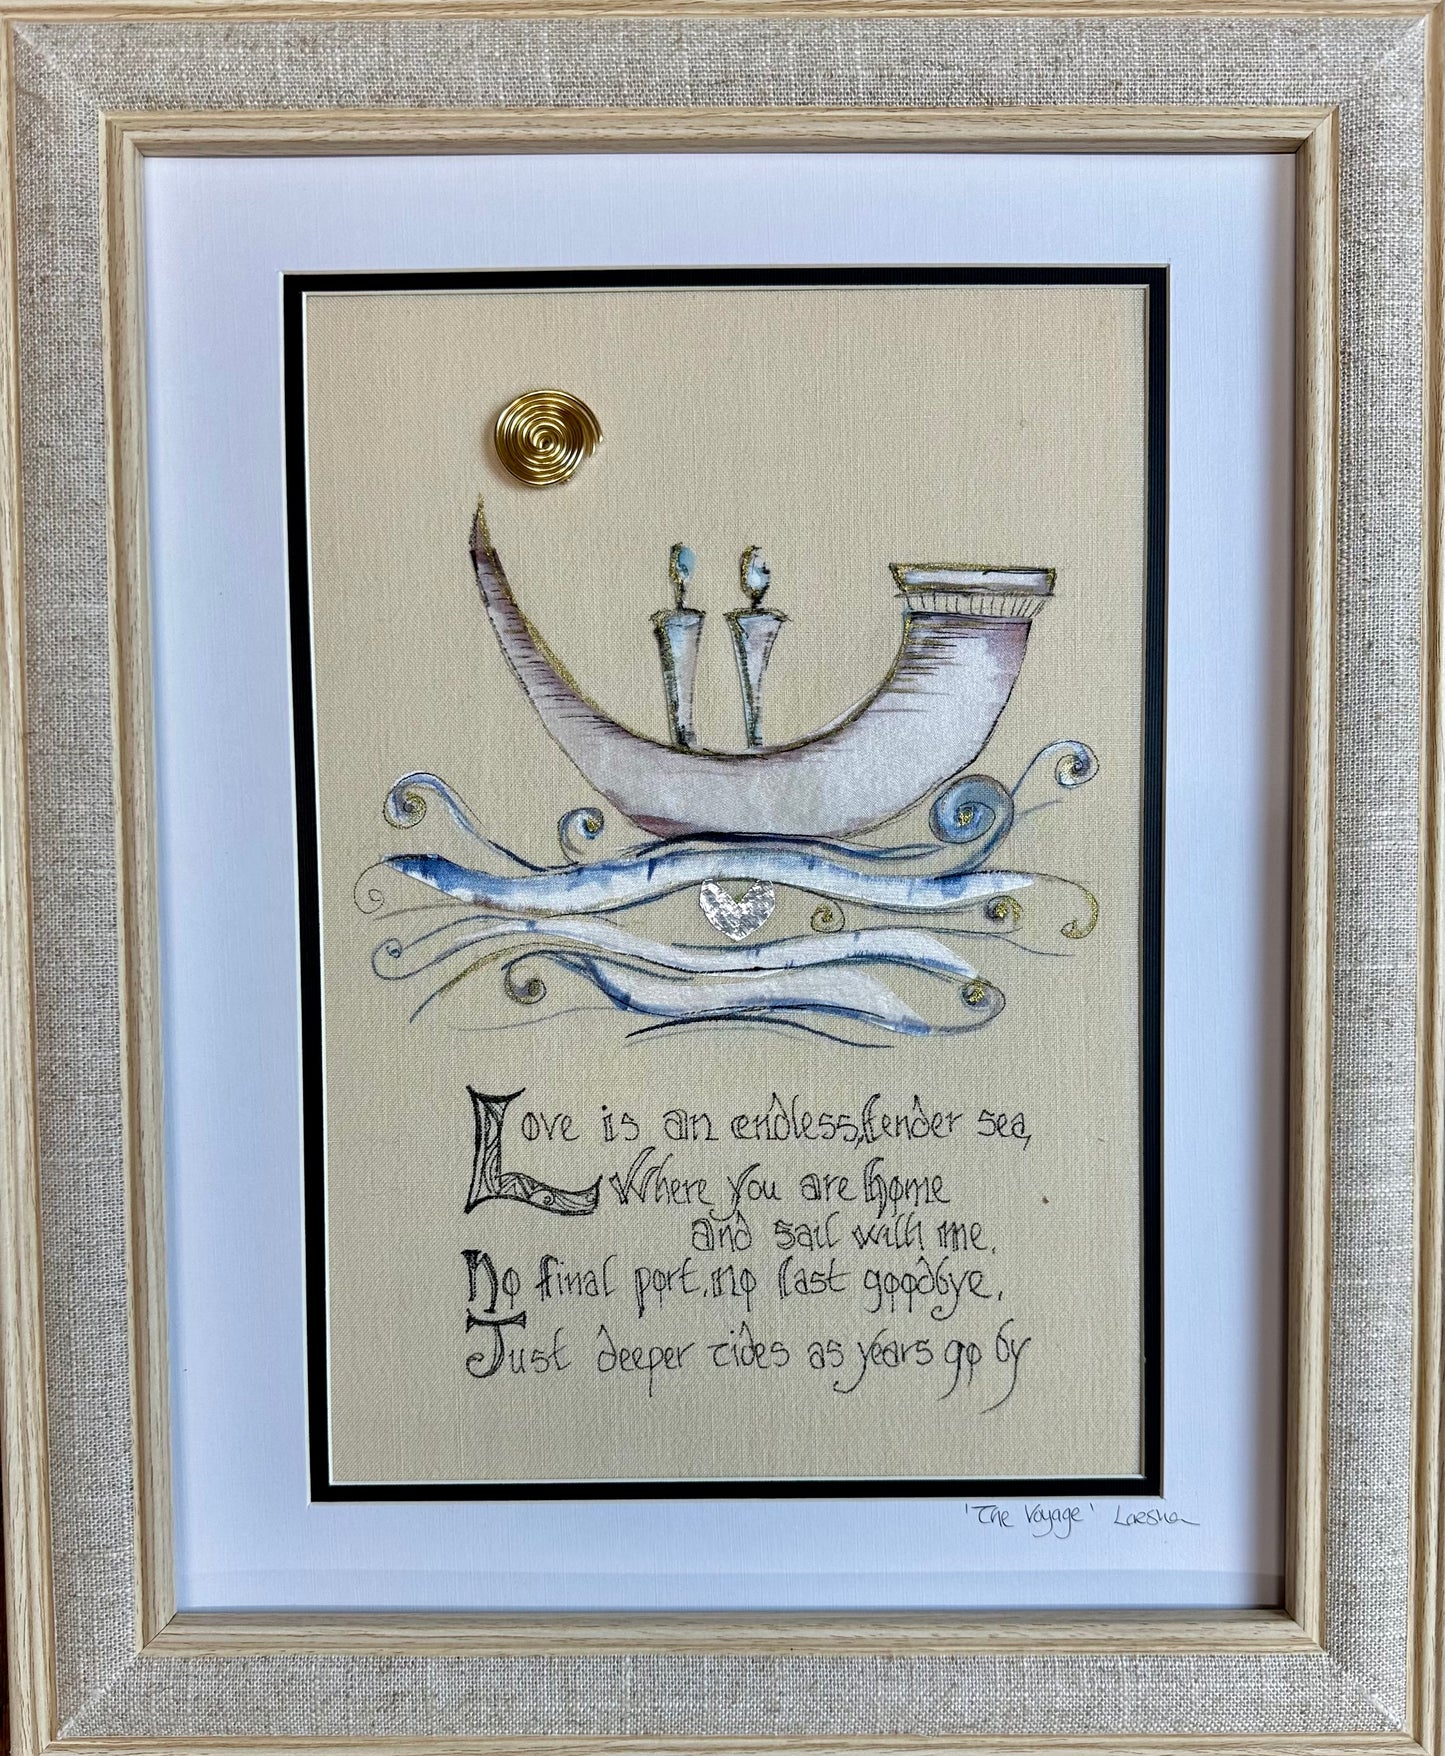 Love is an endless, tender sea,
Where you are home
and sail with me.
No final port, no last goodbye,
Just deeper tides as years go by
'The Voyage' Laesha